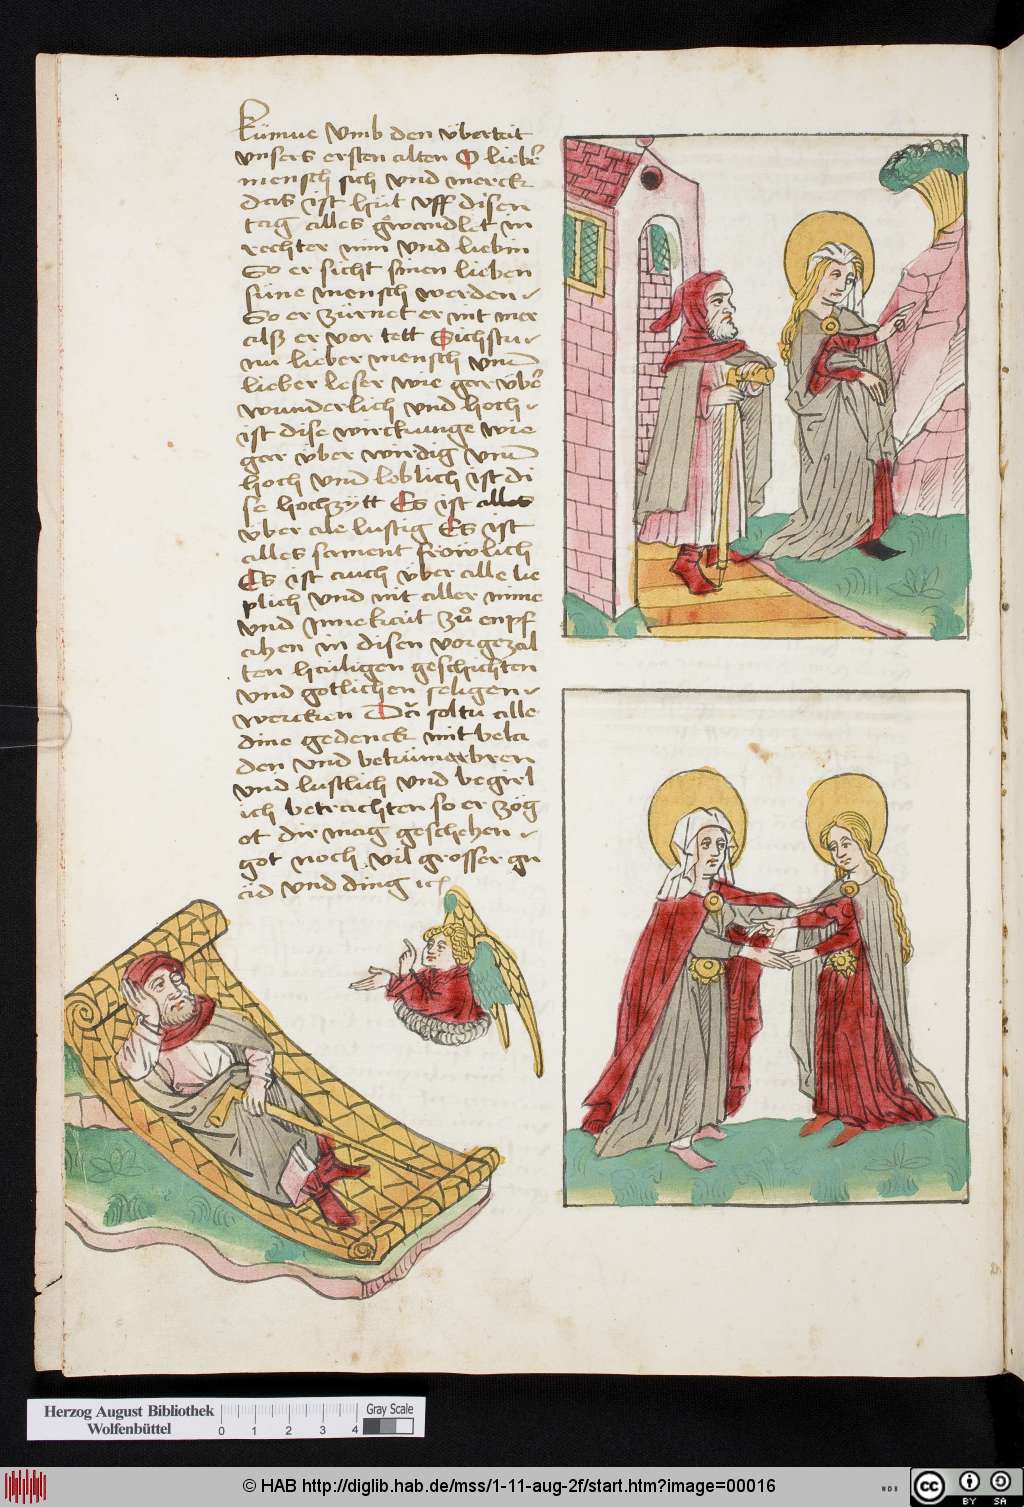 kümue vmb den übertrit
vnsers ersten alten O lieber
mensch sich vnd merck
das ist hüt vff disen
tag alles gewandlet in
rechter min vnd liebin
So er sicht sinen lieben
süne mensch werden
So er zürnet er nit mer
alß er vor tett Sichstu
nu lieber mensch vnd
lieber leser wie gar über
wunderlich vnd hoch
ist dise wirckunge wie
gar über wirdig vnd
hoch vnd loblich ist di
se hochzytt Es ist alles
über alle lustig Es ist
alles sament frowlich
Es ist auch über alle lie
plich vnd mit aller mine
vnd Innekait zů enpf
ahen in disen vorgezal
ten hailigen geschichten
vnd gotlichen seligen
wercken Da soltu alle
dine gedenck mit bela
den vnd bekümerbren
vnd lustlich vnd begirl
ich betrachten so er zög
ot dir mag geschehen
got noch vil grosser gn
ad vnd ding ich
Herzog August Bibliothek
Wolfenbüttel
0 1 2 3 4
Gray Scale
© HAB http://diglib.hab.de/mss/1-11-aug-2f/start.htm?image=00016
WDB
CC BY SA